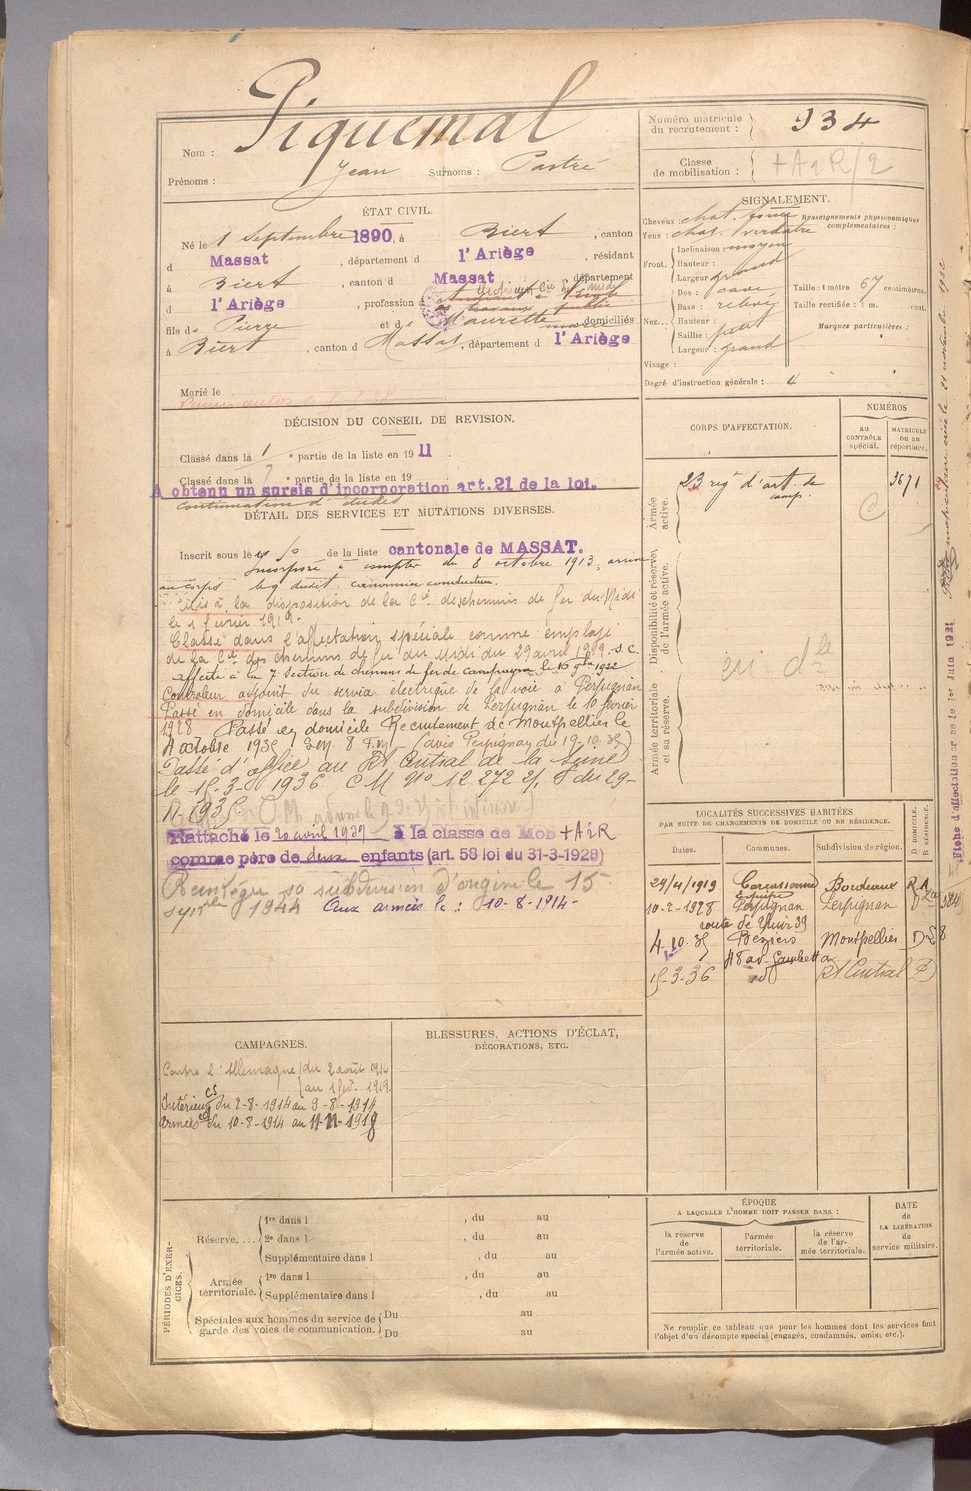 Nom : Piquemal
Prénoms : Jean Surnoms : Pastré
Numéro matricule du recrutement : 934
Classe de mobilisation : +A2R/2
ÉTAT CIVIL.
Né le 1 Septembre 1890, à Biert, canton
d Massat, département d l'Ariège, résidant
à Biert, canton d Massat, département
d l'Ariège, profession d
fils de Pierre et de Maurette domiciliés
à Biert, canton d Massat, département d l'Ariège
Marié le
SIGNALEMENT.
Cheveux : chat. foncé
Yeux : chat. verdâtre
Front. Inclinaison : moyen
Hauteur :
Largeur : grand
Nez... Dos : cave
Base : relevé
Hauteur :
Saillie : petit
Largeur : grand
Visage :
Degré d'instruction générale : 4
Renseignements physionomiques complémentaires :
Taille : 1 mètre 67 centimètres.
Taille rectifiée : 1 m. cent.
Marques particulières :
DÉCISION DU CONSEIL DE REVISION.
Classé dans la 1 e partie de la liste en 1911.
Classé dans la e partie de la liste en 19
A obtenu un sursis d'incorporation art. 21 de la loi.
continuation d'études
DÉTAIL DES SERVICES ET MUTATIONS DIVERSES.
Inscrit sous le n° 50 de la liste cantonale de MASSAT.
Incorporé à compter du 8 octobre 1913, arrivé
au corps le 9 dudit, canonnier conducteur.
Mis à la disposition de la Cie des chemins de fer du Midi
le 1 février 1919.
Classé dans l'affectation spéciale comme employé
de la Cie des chemins de fer du Midi du 29 avril 1919. S.C.
affecté à la 7 Section de chemins de fer de campagne le 16 9bre 1922
Controleur adjoint du service électrique de la voie à Perpignan
Passé en domicile dans la subdivision de Perpignan le 10 février
1928 Passé en domicile Recrutement de Montpellier le
4 octobre 1935 (avis Perpignan du 19-10-35)
Passé d'office au Rt Central de la Seine
le 15-3-1936 CM No 12272 2/1 du 29-
11-1935.
Rattaché le 20 avril 1937 à la classe de Mob +A2R
comme père de deux enfants (art. 58 loi du 31-3-1928)
Réintégré sa subdivision d'origine le 15
septbre 1944 Aux armées le : 10-8-1914-
CORPS D'AFFECTATION.
NUMÉROS
au CONTRÔLE spécial.
MATRICULE ou au répertoire.
Armée active.
23 rég d'art. de camp.
3671
Disponibilité et réserve de l'armée active.
Armée territoriale et sa réserve.
LOCALITÉS SUCCESSIVES HABITÉES
PAR SUITE DE CHANGEMENTS DE DOMICILE OU DE RÉSIDENCE.
Dates. Communes. Subdivision de région. D. DOMICILE. R. RÉSIDENCE.
29/4/1919 Carcassonne Bordeaux R.A.
10-2-1928 Perpignan Perpignan D
4-10-35 Béziers Montpellier D
48 av. Gambetta
15-3-36 id Rt Central D
CAMPAGNES.
Contre l'Allemagne du 2 août 1914
au 1 fév. 1919.
Intérieur CS du 2-8-1914 au 9-8-1914
Armées du 10-8-1914 au 11-11-1918
BLESSURES, ACTIONS D'ÉCLAT,
DÉCORATIONS, ETC.
PÉRIODES D'EXERCICES.
Réserve.... 1re dans l , du au
2e dans l , du au
Supplémentaire dans l , du au
Armée territoriale. 1re dans l , du au
Supplémentaire dans l , du au
Spéciales aux hommes du service de garde des voies de communication. Du au
Du au
ÉPOQUE
A LAQUELLE L'HOMME DOIT PASSER DANS :
la réserve de l'armée active.
l'armée territoriale.
la réserve de l'armée territoriale.
DATE de LA LIBÉRATION du service militaire.
Ne remplir ce tableau que pour les hommes dont les services font
l'objet d'un décompte spécial (engagés, condamnés, omis, etc.).